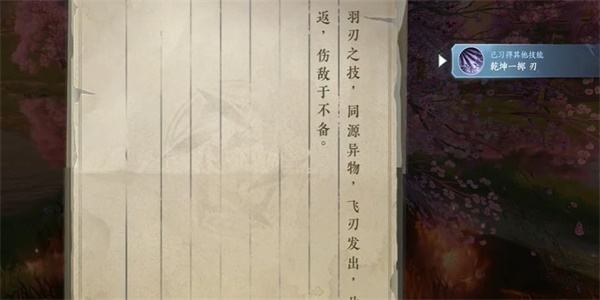 羽刃之技，同源异物，飞刃发出，
返，伤敌于不备。
已习得其他技能
乾坤一掷 刃